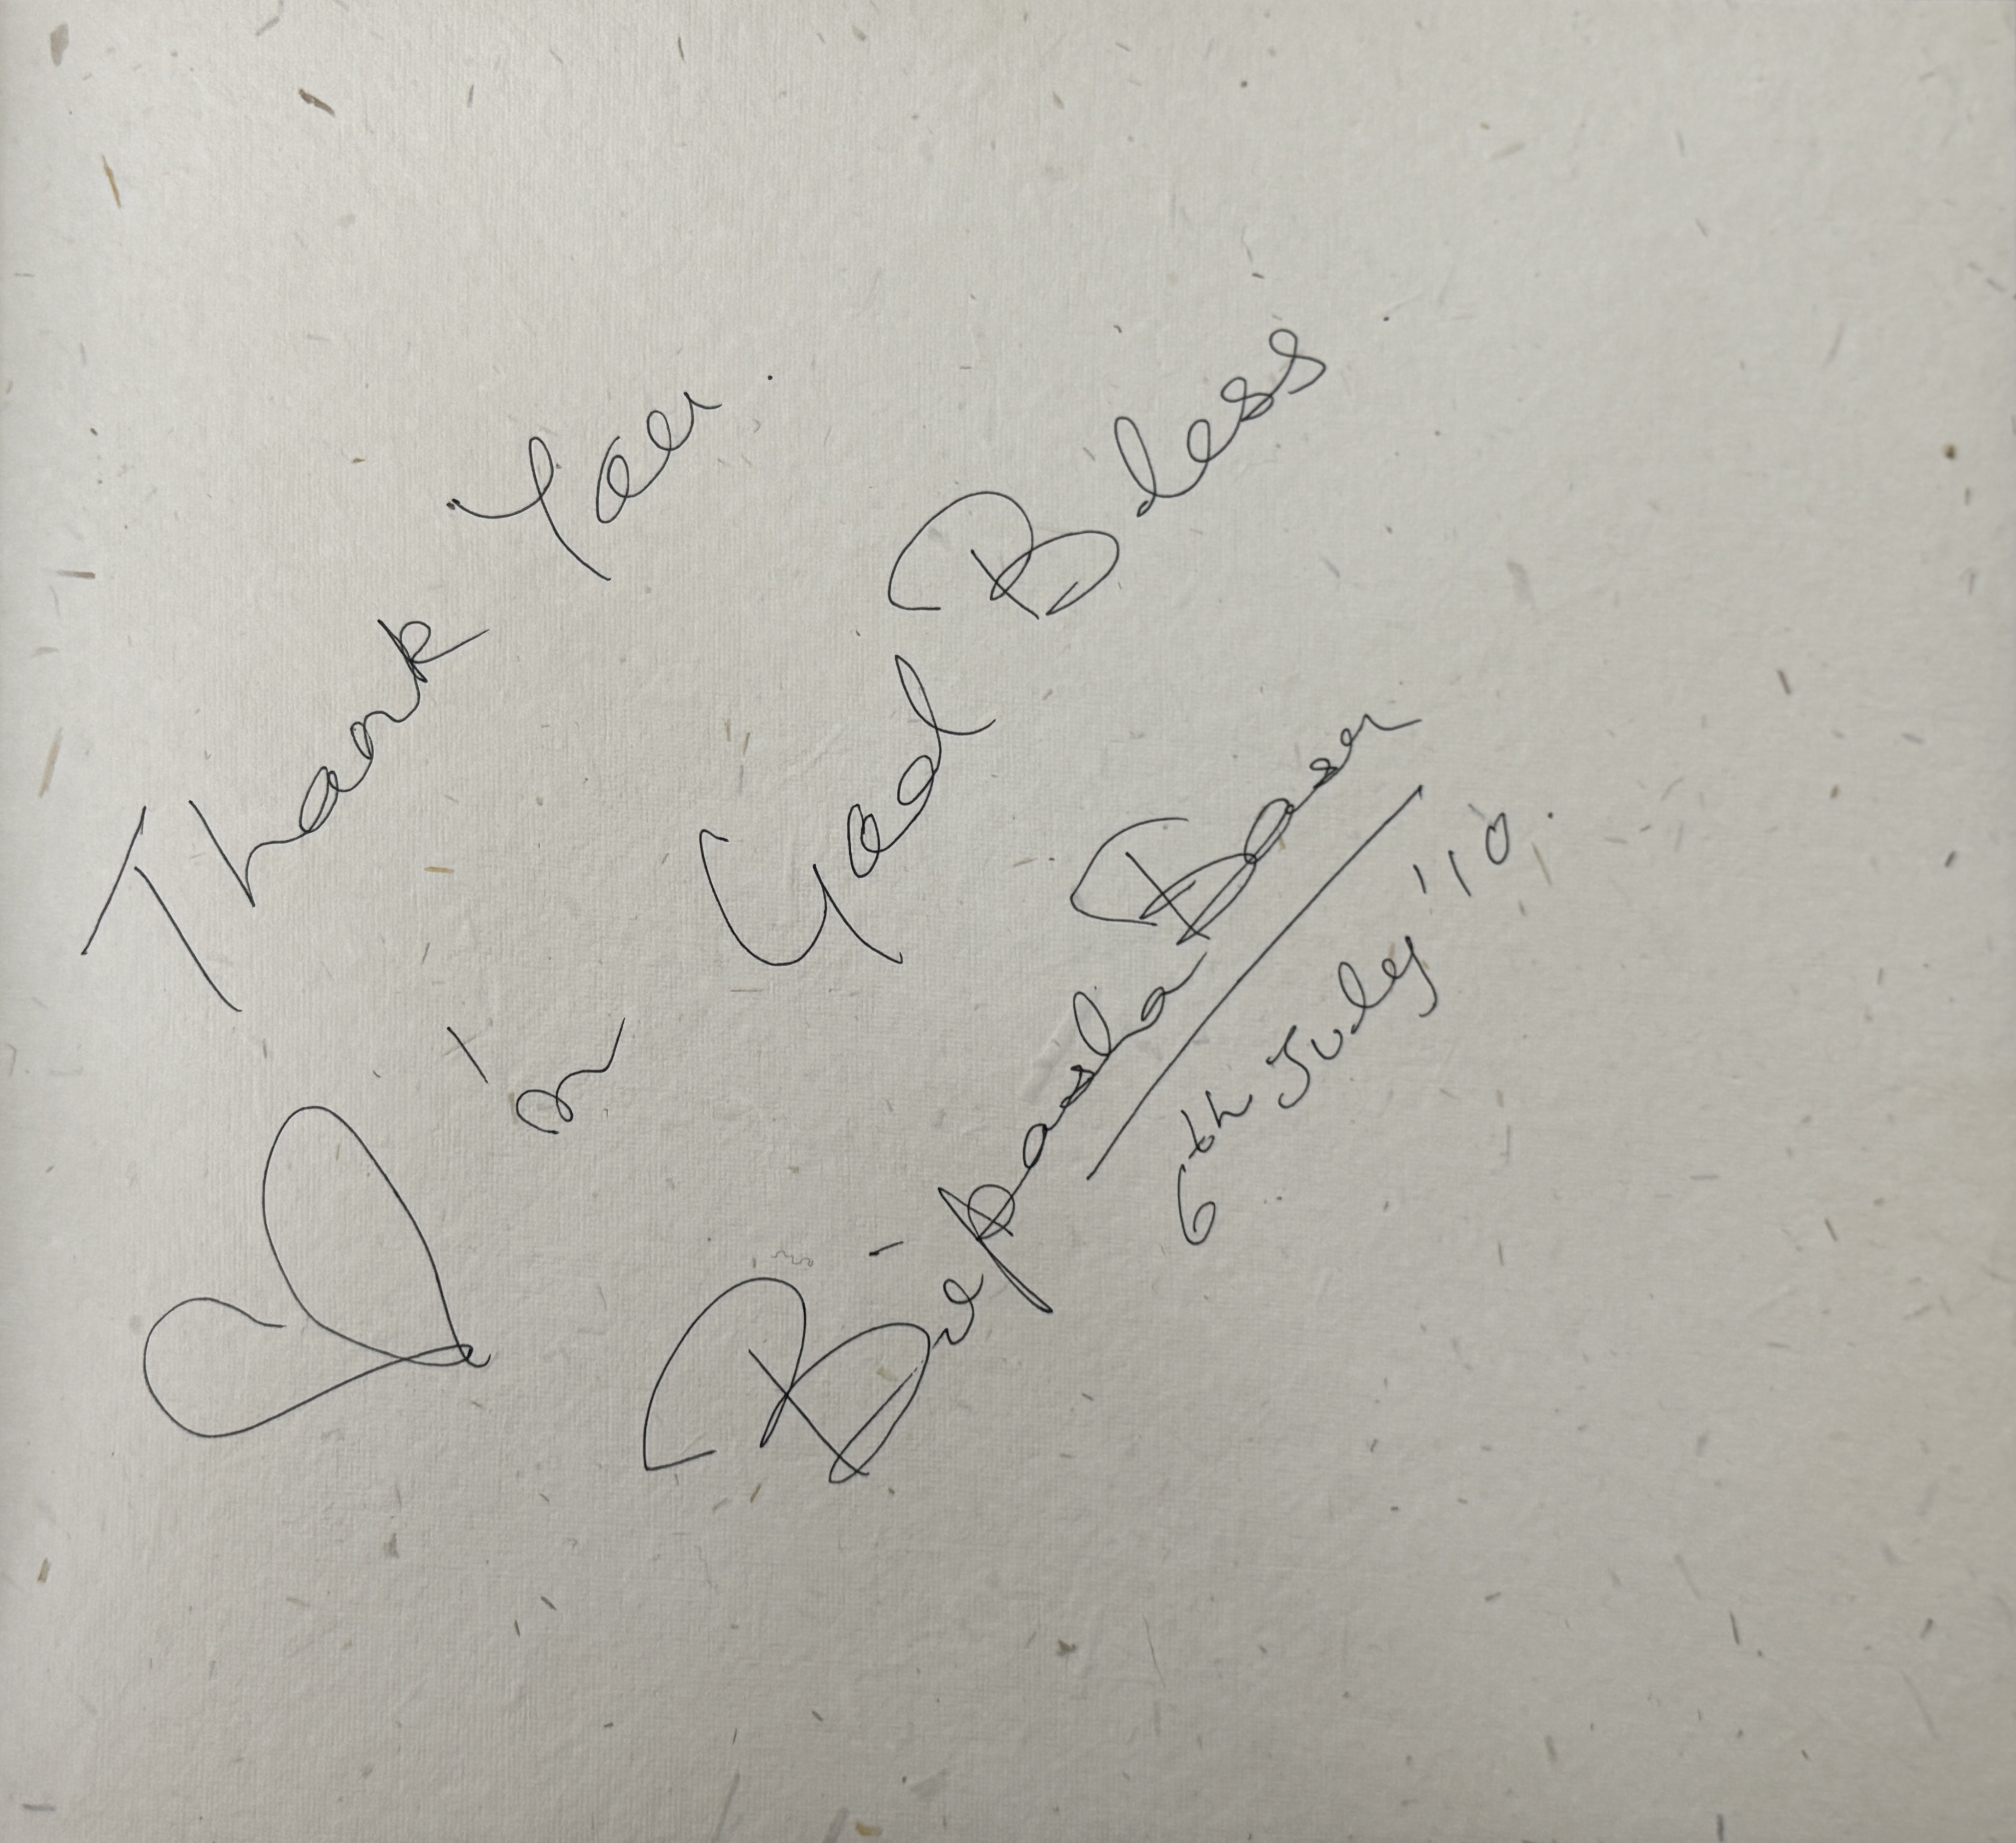 Thank You.
♡'n God Bless.
Bipasha Basu
6th July '10.